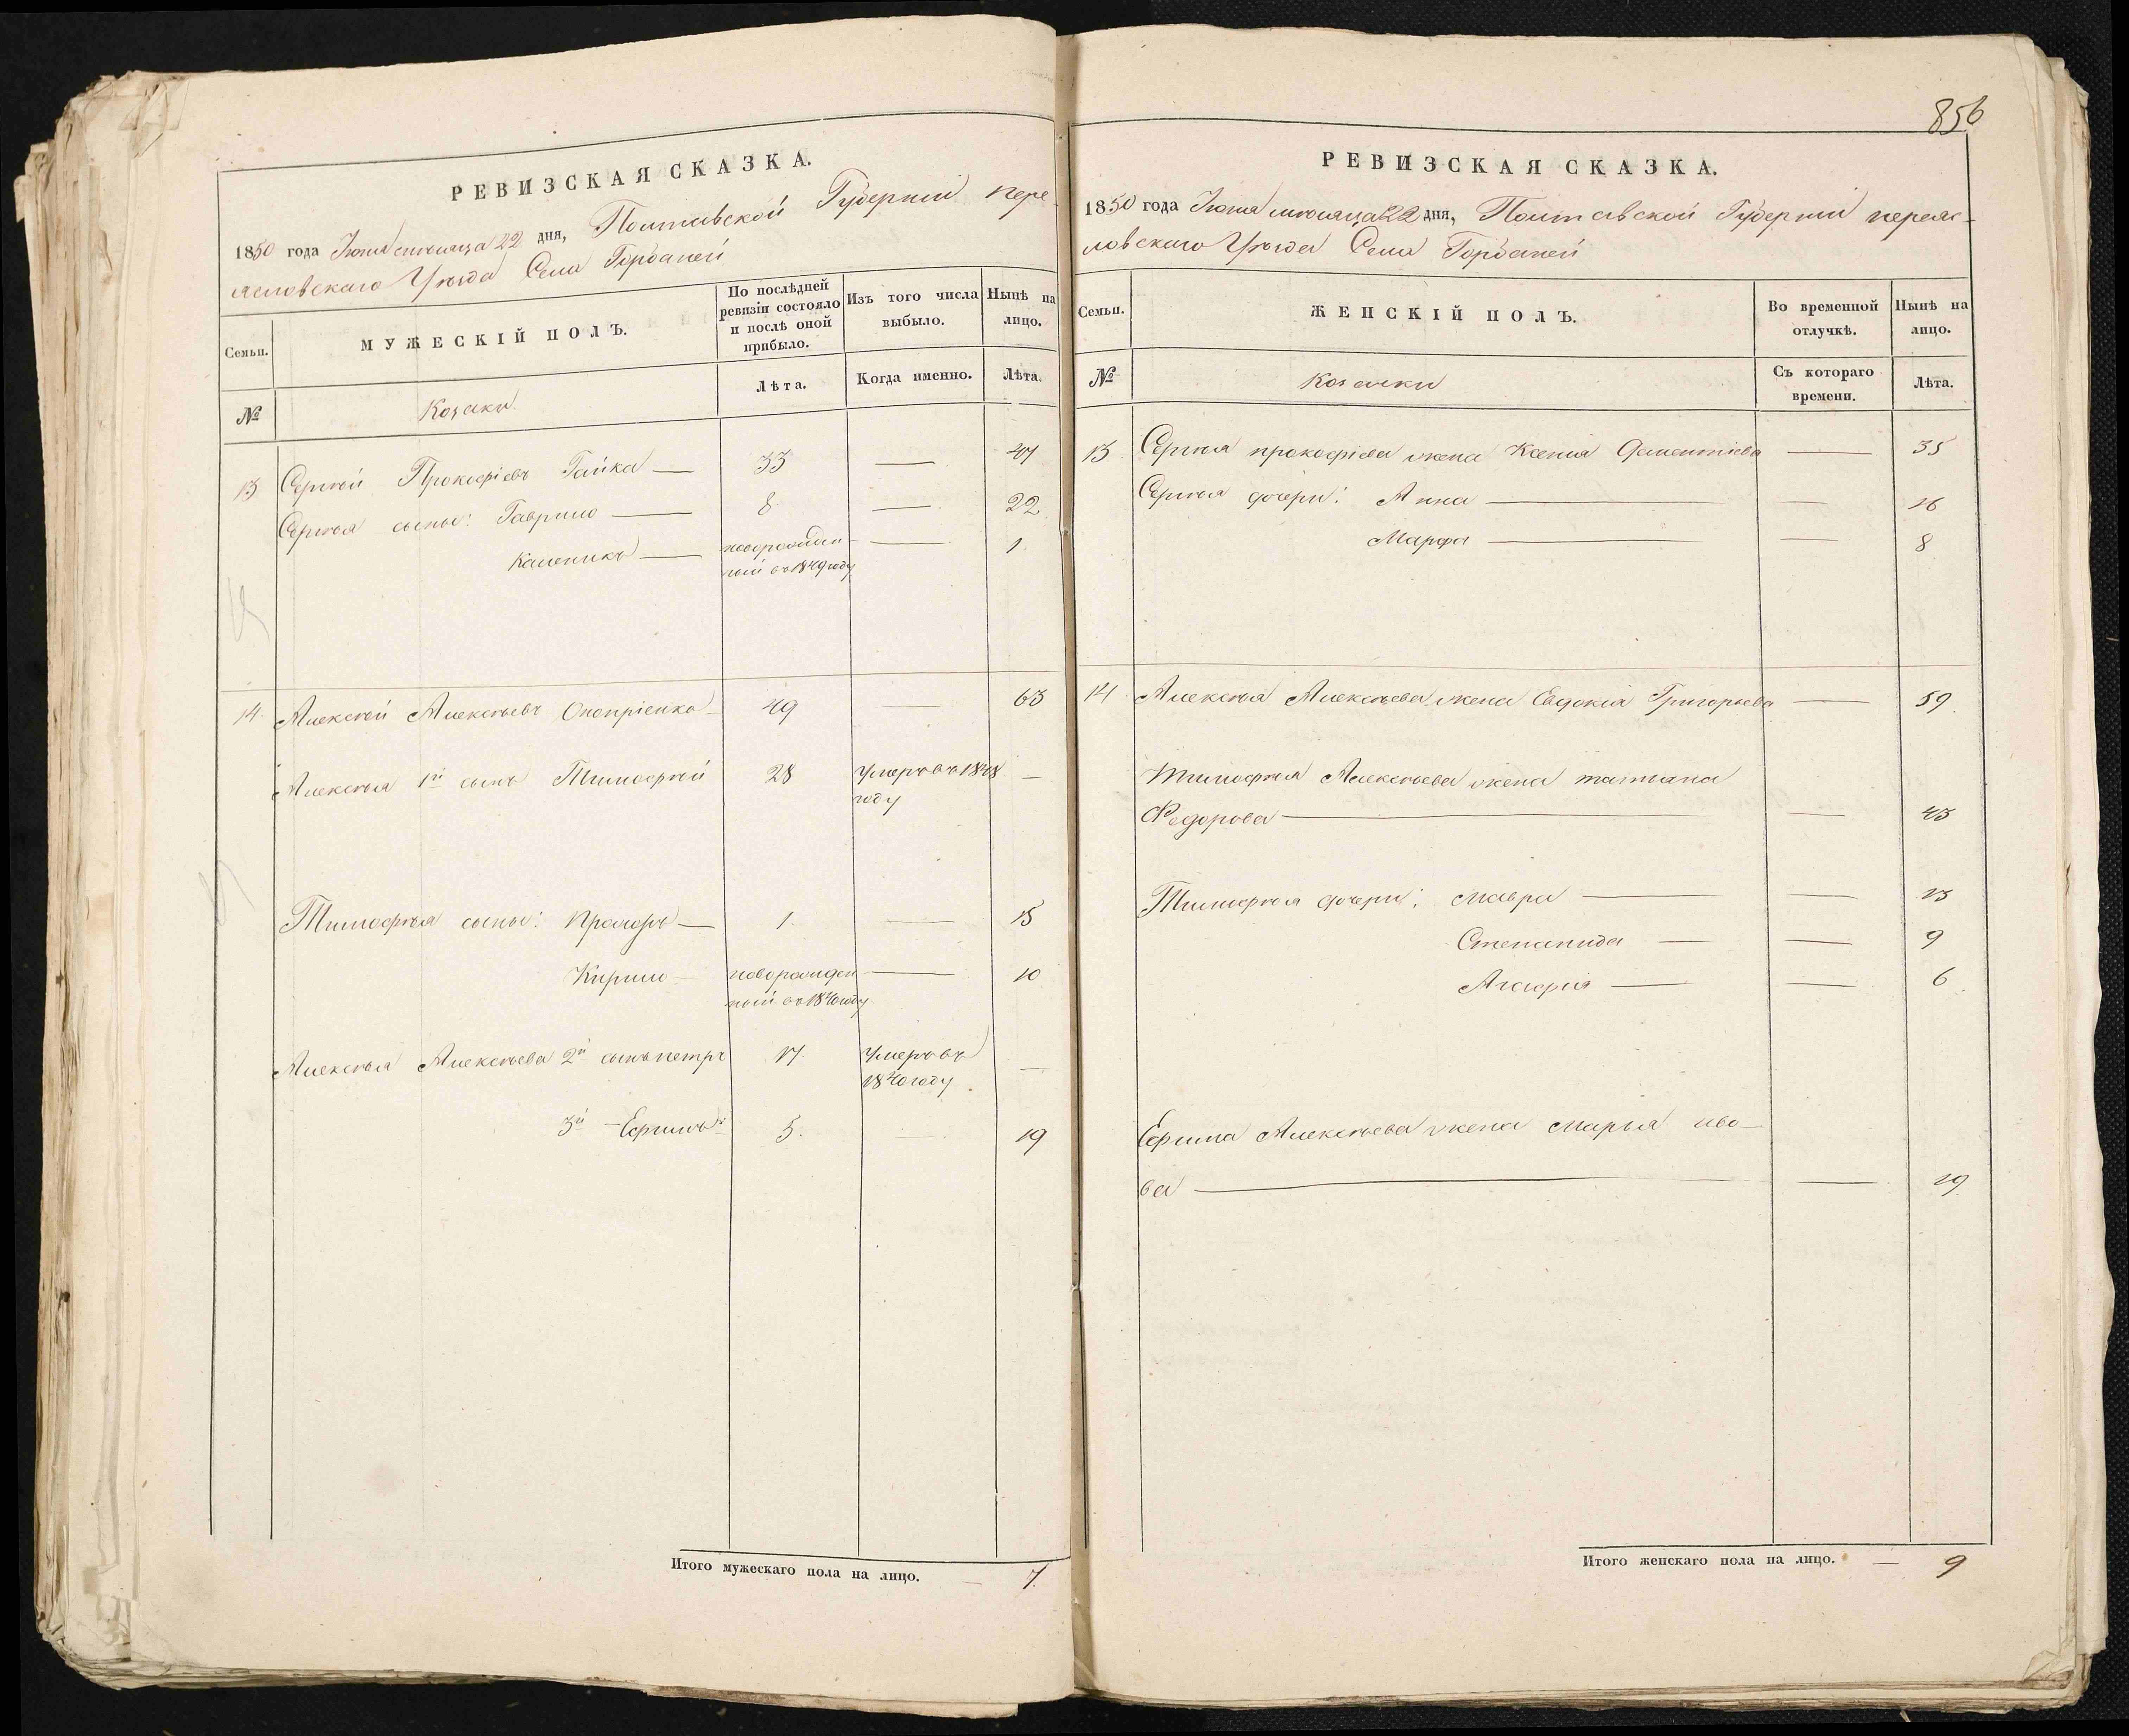 РЕВИЗСКАЯ СКАЗКА.
1850 года Июня месяца 22 дня, Полтавской Губерніи Пере-
яславскаго Уѣзда Села Горбаней
Семьи.
МУЖЕСКІЙ ПОЛЪ.
По послѣдней ревизіи состояло и послѣ оной прибыло.
Изъ того числа выбыло.
Нынѣ на лицо.
№
Козаки
Лѣта.
Когда именно.
Лѣта.
13 Сергѣй Прокофіевъ Гайка — 33 — 47
Сергѣя сыны: Гаврило — 8 — 22
Каленикъ — новорожден- — 1
ный въ 1849 году
14 Алексѣй Алексѣевъ Онопріенко — 49 63
Алексѣя 1й сынъ Тимофѣй 28 Умеръ въ 1848 —
году
Тимофѣя сыны: Прохоръ — 1. — 15
Кирило — новорожден — 10
ный въ 1840 году
Алексѣя Алексѣева 2й сынъ петръ 17. Умеръ въ —
1840 году
3й — Ефимъ 5. — 19
Итого мужескаго пола на лицо. — 7.
856
РЕВИЗСКАЯ СКАЗКА.
1850 года Июня месяца 22 дня, Полтавской Губерніи переяс-
лавскаго Уѣзда Села Горбаней
Семьи.
ЖЕНСКІЙ ПОЛЪ.
Во временной отлучкѣ.
Нынѣ на лицо.
№
Козачки
Съ котораго времени.
Лѣта.
13 Сергѣя прокофіева жена Ксенія — 35
Сергѣя дочери: Анна — — 16
Марфа — — 8
14 Алексѣя Алексѣева жена Евдокія Григорьева — 59.
Тимофѣя Алексѣева жена татьана
Федорова — — 43
Тимофѣя дочери: Мавра — — 13
Степанида — — 9
Агафія — — 6
Ефима Алексѣева жена марья иво-
ва — — 19
Итого женскаго пола на лицо. — 9